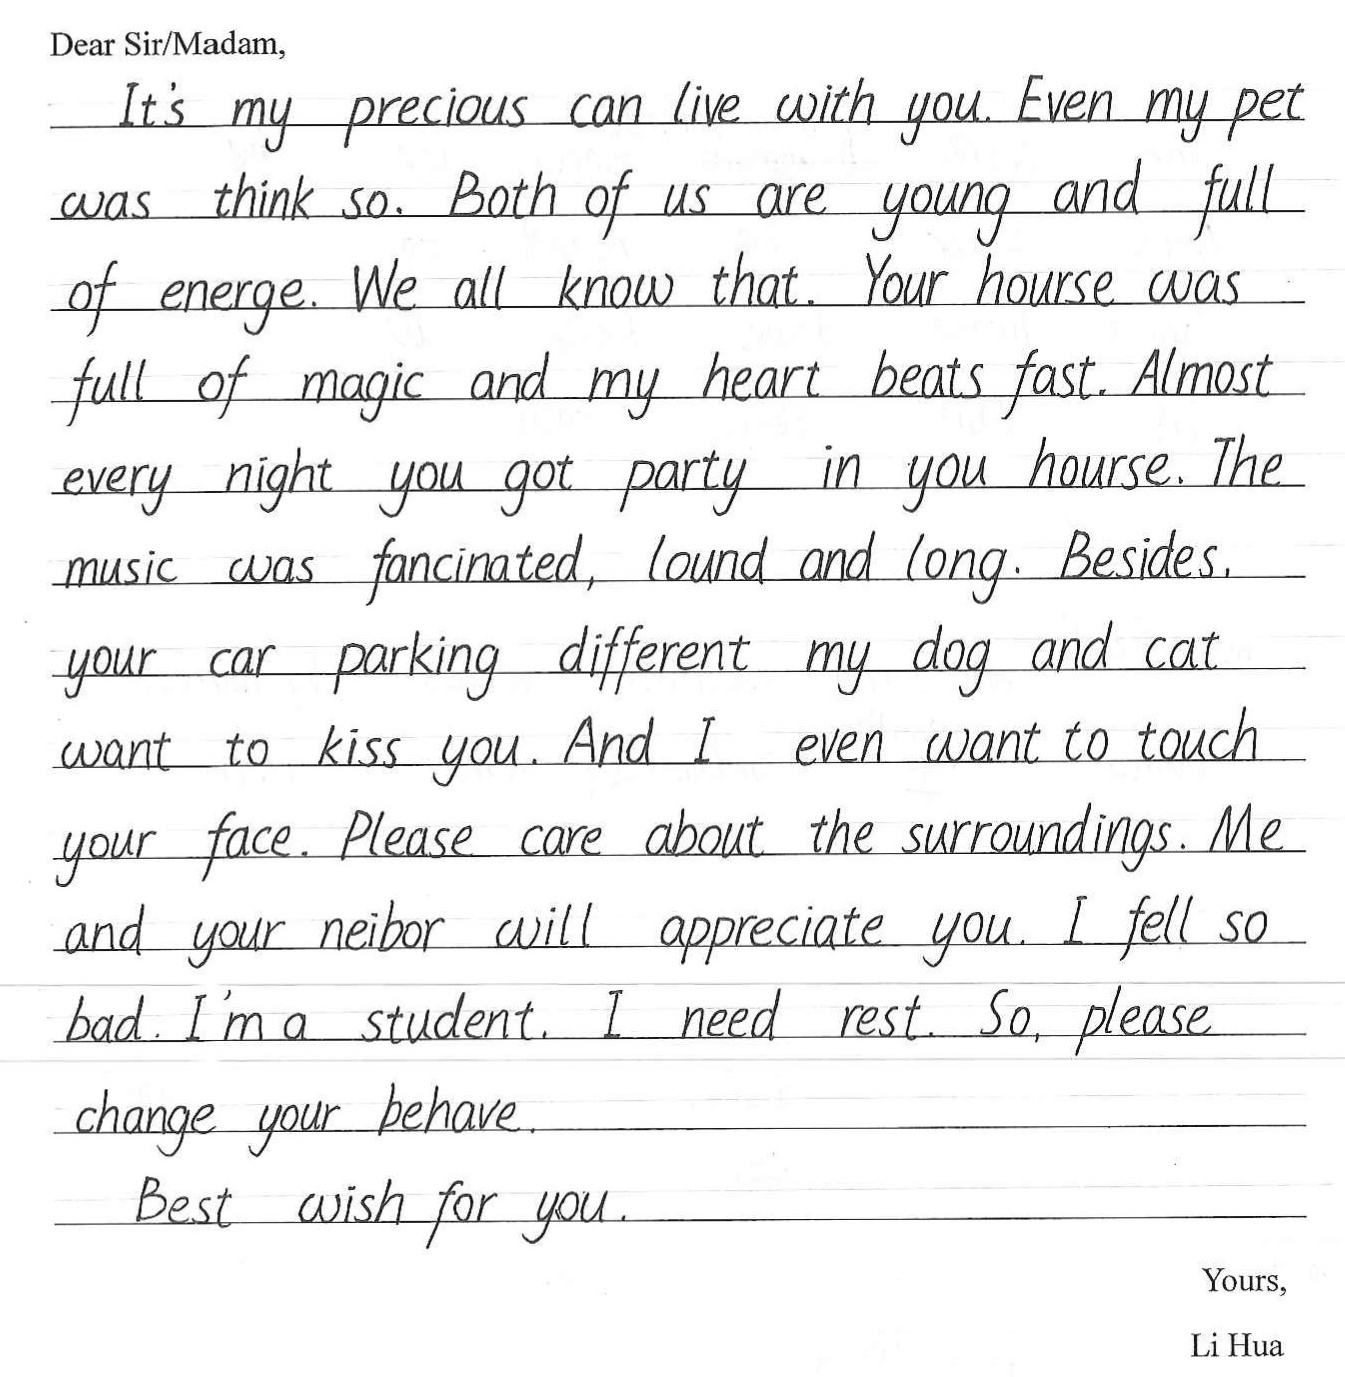 Dear Sir/Madam,
It's my precious can live with you. Even my pet
was think so. Both of us are young and full
of energe. We all know that. Your hourse was
full of magic and my heart beats fast. Almost
every night you got party in you hourse. The
music was fancinated, lound and long. Besides,
your car parking different my dog and cat
want to kiss you. And I even want to touch
your face. Please care about the surroundings. Me
and your neibor will appreciate you. I fell so
bad. I'm a student. I need rest. So, please
change your behave.
Best wish for you.
Yours,
Li Hua